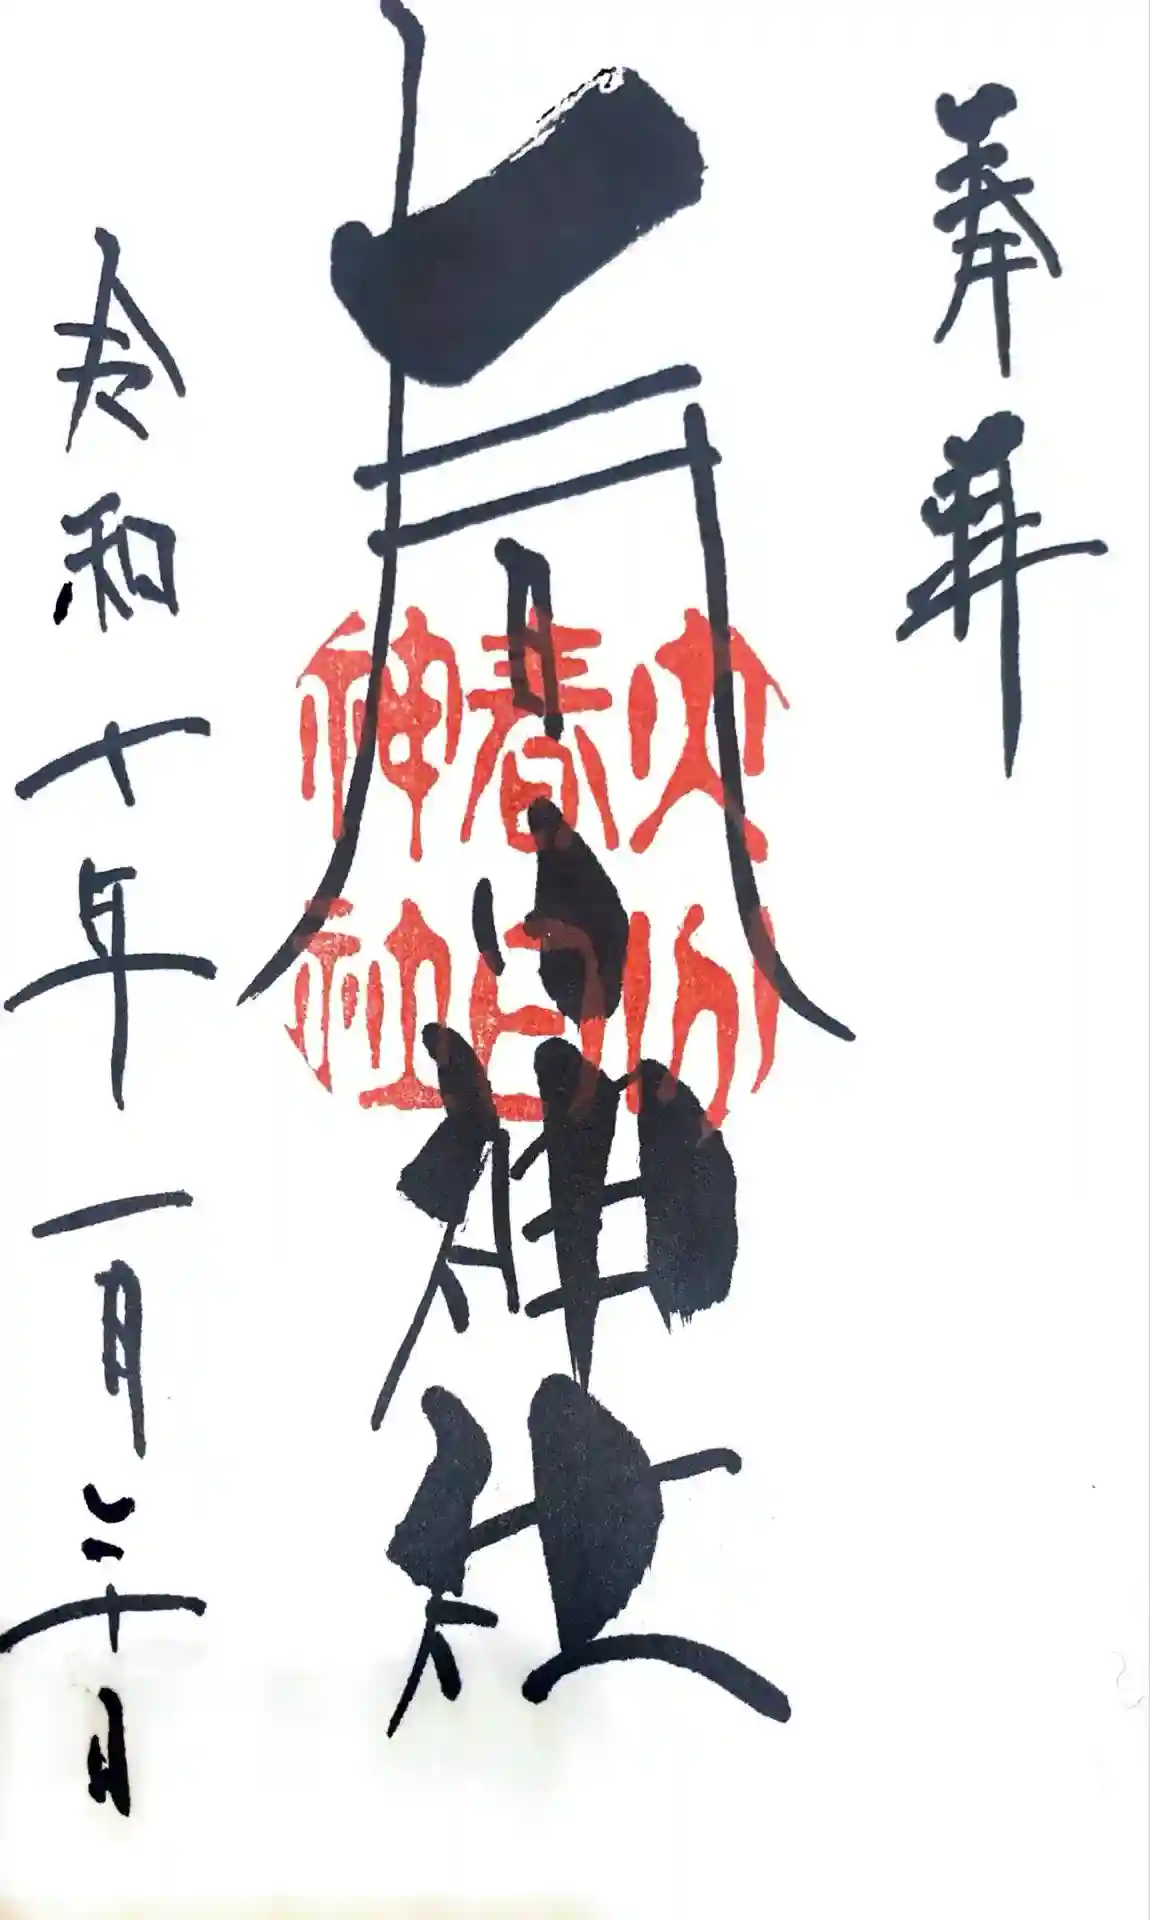 奉拝
春日神社
大分
春日
神社
令和十年一月二十日